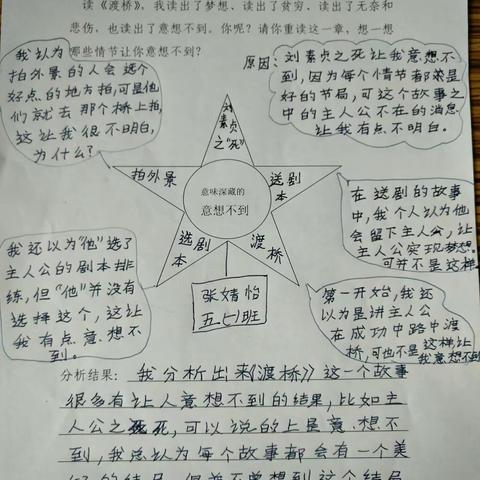 读《渡桥》，我读出了梦想、读出了贫穷、读出了无奈和
悲伤，也读出了意想不到。你呢？请你重读这一章，想一想
哪些情节让你意想不到？
我认为
拍外景的人会选个
好点的地方拍，可是他
们就去那个桥上拍，
这让我很不明白，
为什么？
原因：
刘素贞之死让我意想不
到，因为每个情节都是
好的节局，可这个故事之
中的主人公不在的消息
让我有点不明白。
刘素贞之"死"
拍外景
送剧本
意味深藏的
意想不到
选剧本
渡桥
张婧怡
五、七班
我还以为"他"选了
主人公的剧本排
练，但"他"并没有
选择这个，这让
我有点意想不
到。
在送剧的故事
中，我个人以为他
会留下主人公，让
主人公实现梦想，
可并不是这样
第一开始，我还
以为是讲主人公
在成功中路中渡
桥，可也不是这样，让
我意想不到
分析结果：我分析出来《渡桥》这一个故事
很多有让人意想不到的结果，比如主
人公之死，可以说的上是意想不
到，我总认为每个故事都会有一个美
好的结局，但并不曾想到这个结局